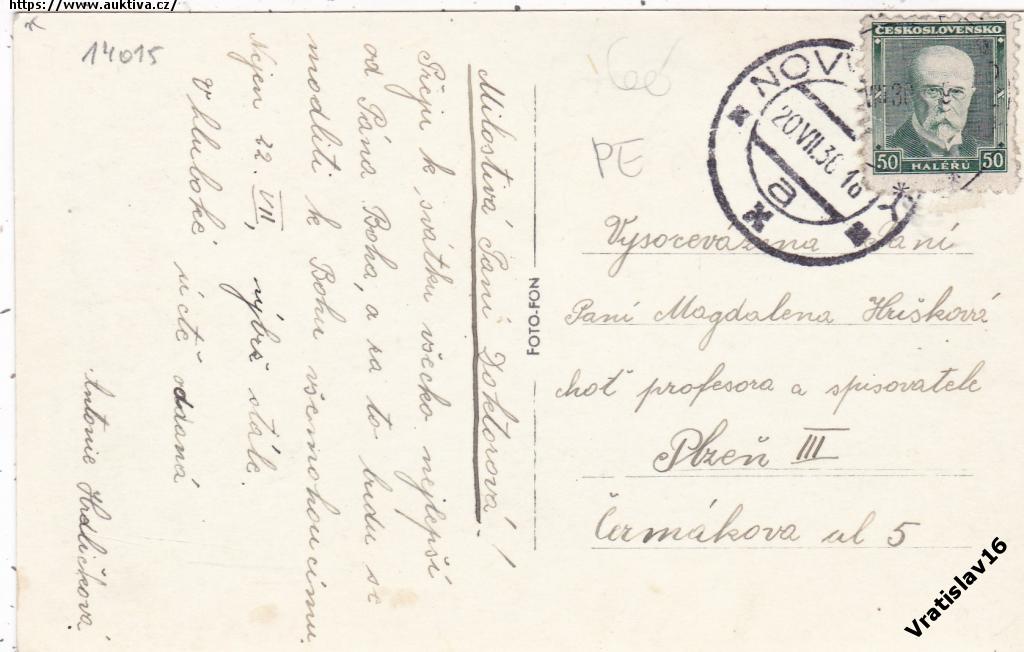 https://www.auktiva.cz/
14015
Milostivá Paní Doktorová!
Přeju k svátku všecko nejlepší
od Pána Boha, a za to budu se
modliti k Bohu všemohoucímu
Nejen 22. VII, nýbrž stále.
V hluboké úctě oddaná
Antonie Hrdličková
FOTO-FON
PE
NOV
20.VII.36 16
a
ČESKOSLOVENSKO
50 HALÉŘŮ 50
Vysocevážená Paní
Paní Magdalena Hrišková
choť profesora a spisovatele
Plzeň III
Čermákova ul 5
Vratislav16